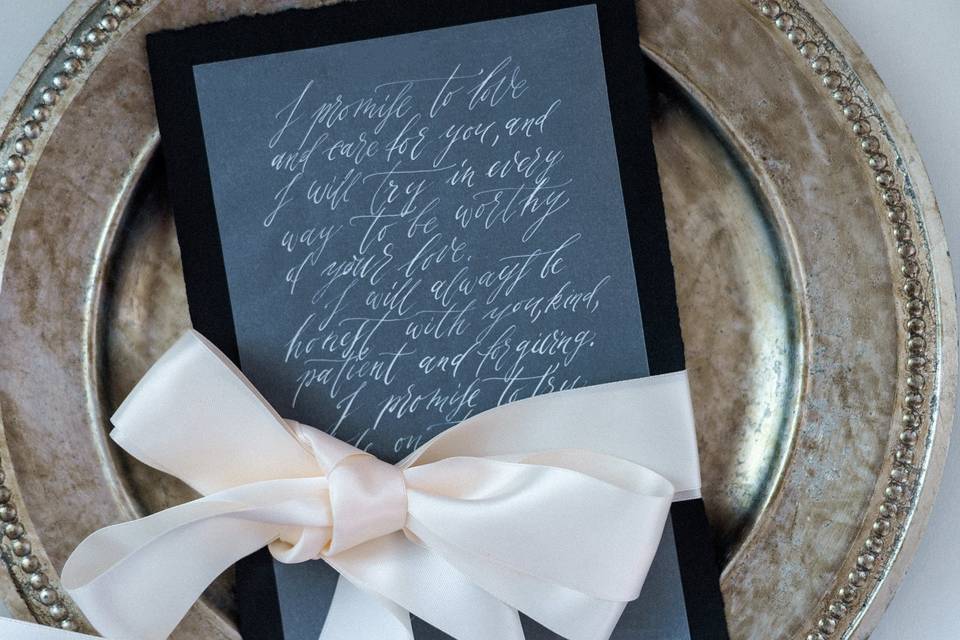 I promise to love
and care for you, and
I will try in every
way to be worthy
of your love.
I will always be
honest with you, kind,
patient and forgiving.
I promise to try
on